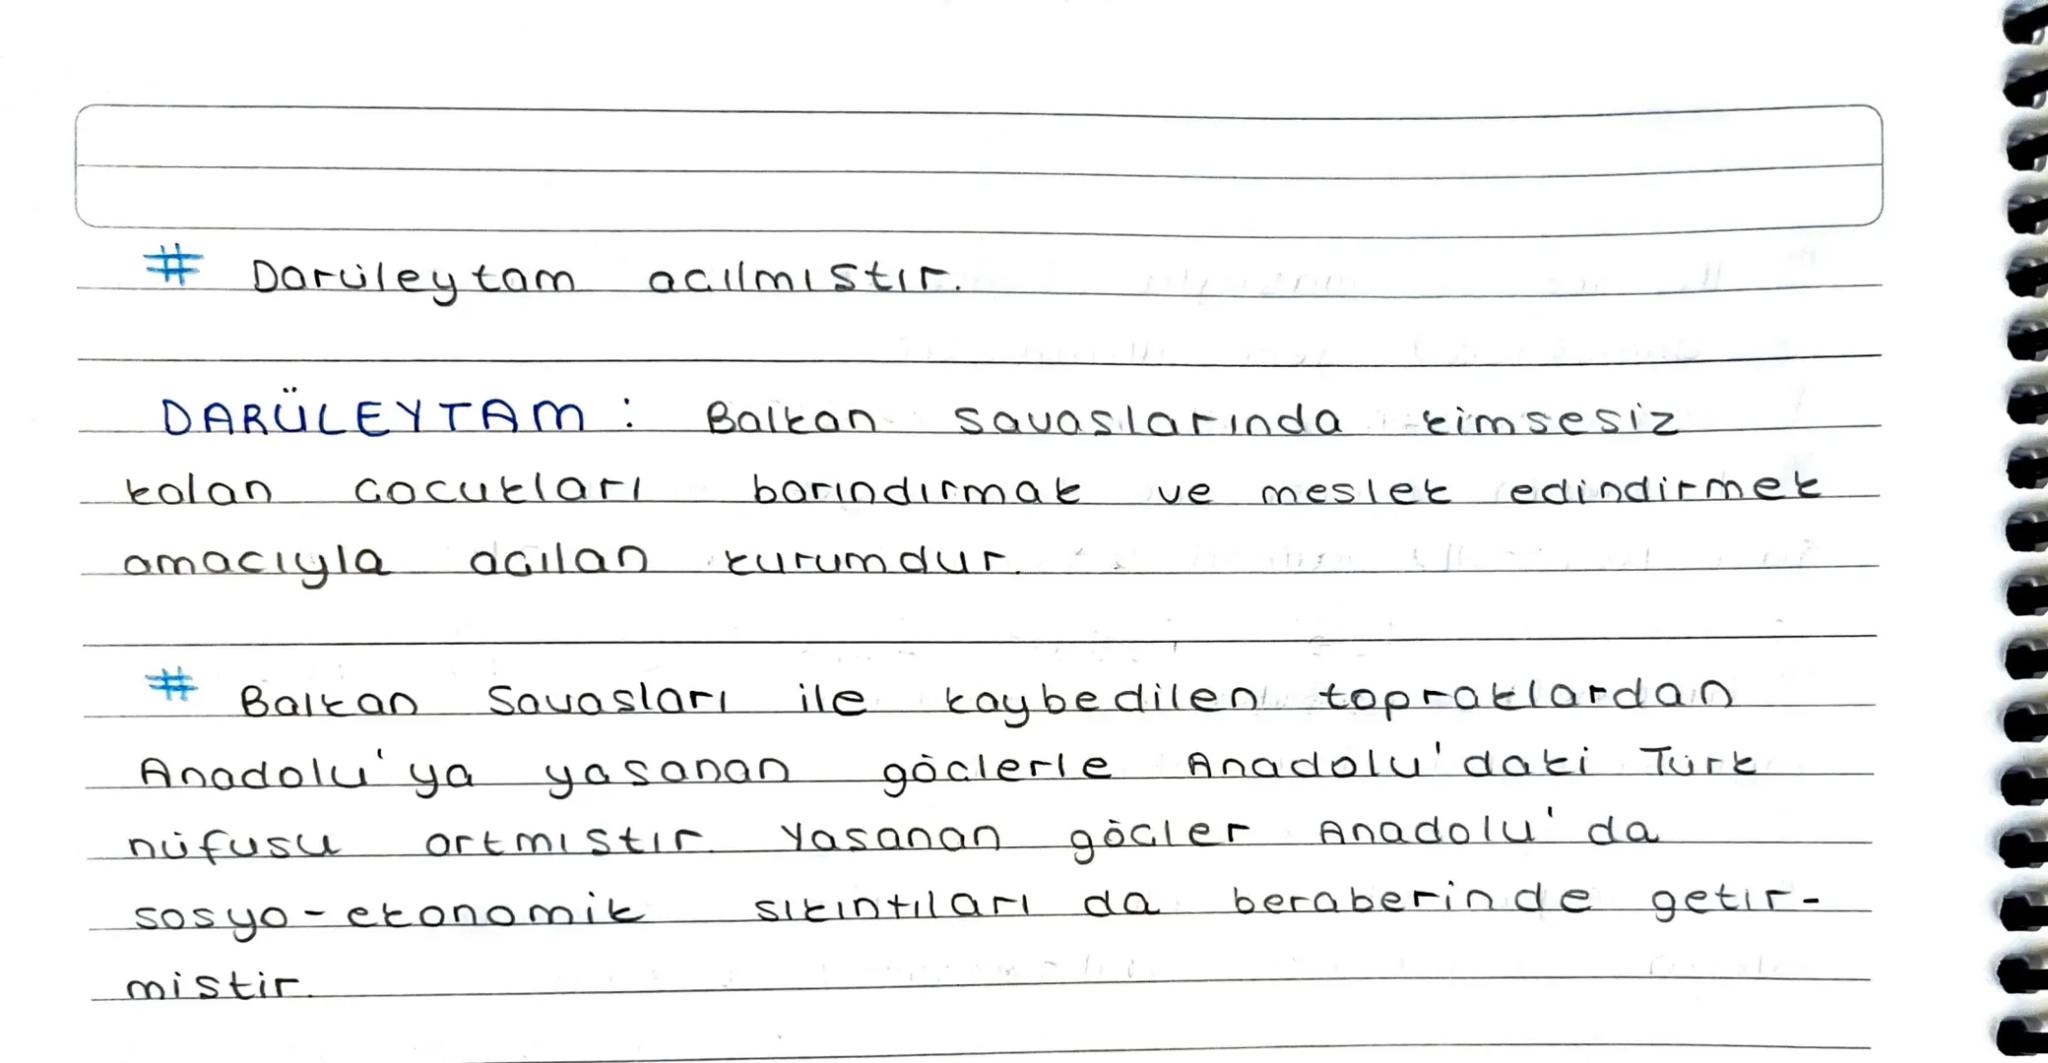 # Darüleytam acılmıstır.
DARÜLEYTAM : Balkan savaslarında kimsesiz
kalan cocukları barındırmak ve meslek edindirmek
amacıyla acılan kurumdur.
# Balkan Savasları ile kaybedilen topraklardan
Anadolu'ya yasanan göclerle Anadolu'daki Türk
nüfusu artmıstır. Yasanan göcler Anadolu'da
sosyo-ekonomik sıkıntıları da beraberinde getir-
mistir.